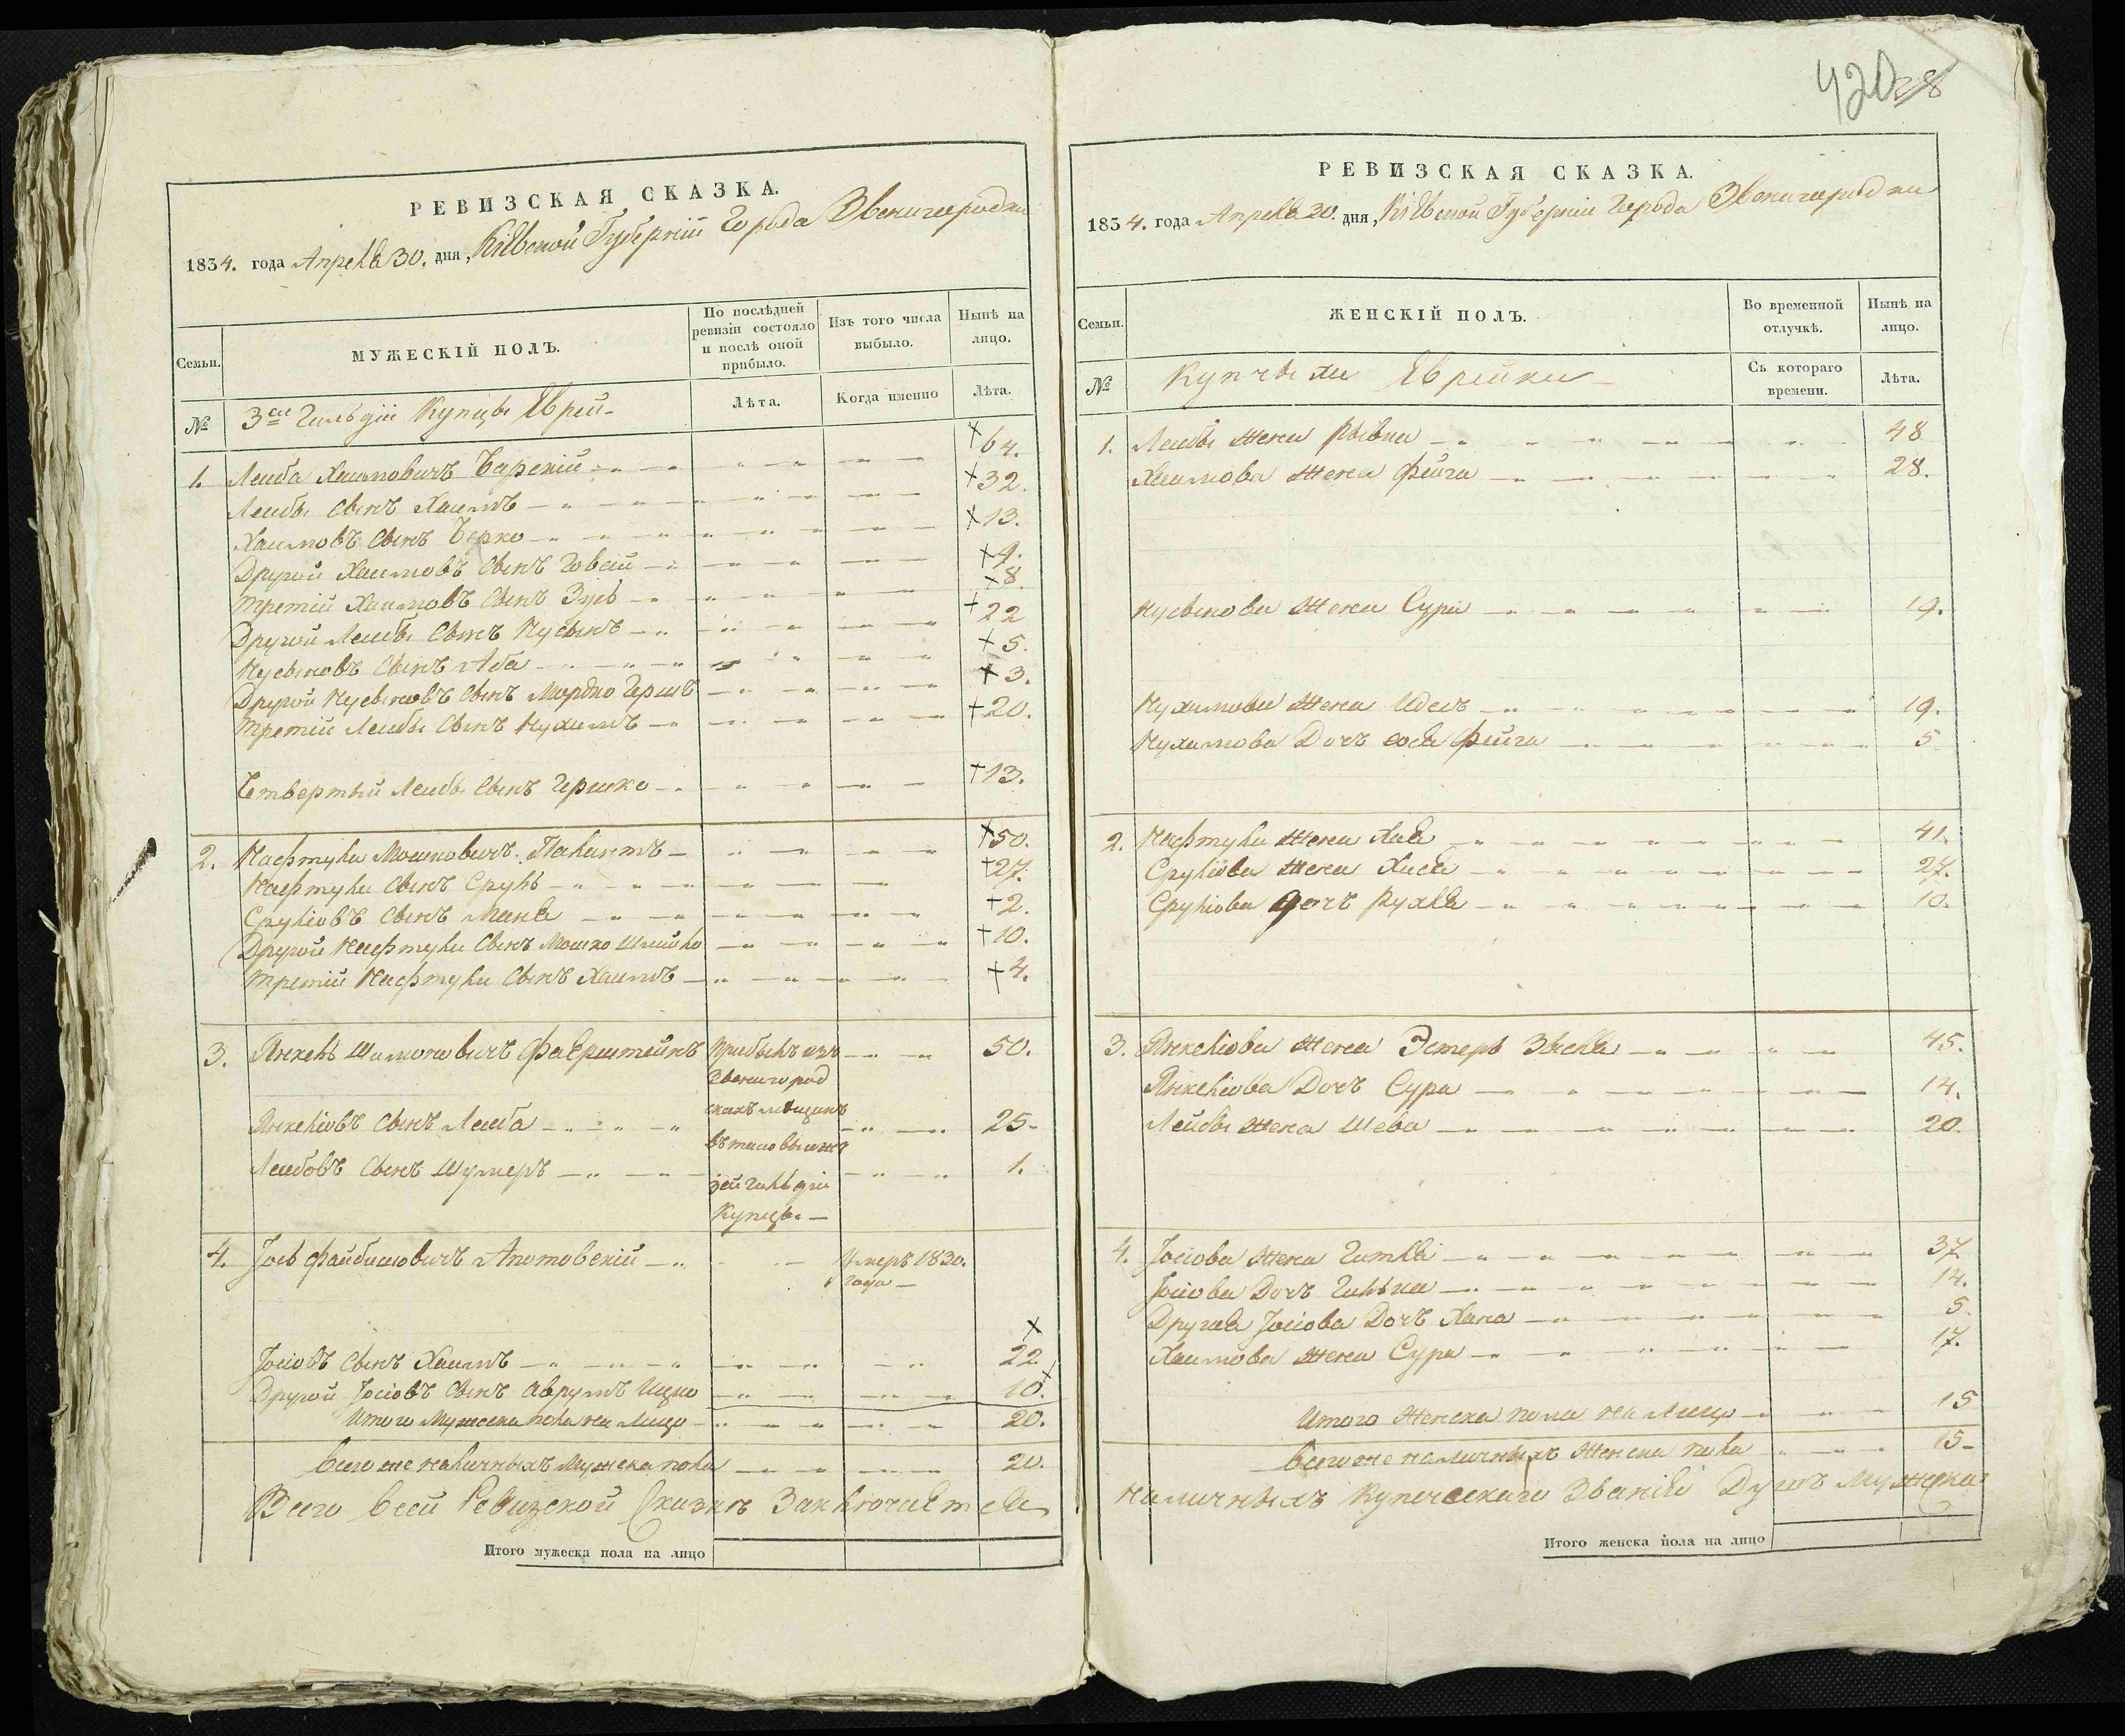 РЕВИЗСКАЯ СКАЗКА.
1834. года Апреля 30. дня, Кіевской Губерніи Города Звенигородки
Семьи.
МУЖЕСКІЙ ПОЛЪ.
По послѣдней ревизіи состояло и послѣ оной прибыло.
Изъ того числа выбыло.
Нынѣ на лицо.
№
3ей Гильдіи Купцы Евреи
Лѣта.
Когда именно
Лѣта.
1. Лейба Хаимовичъ Барскій 64.
Лейбы сынъ Хаимъ 32.
Хаимовъ сынъ Берко 13.
Другой Хаимовъ сынъ 9.
Третій Хаимовъ сынъ Зусь 8.
Другой Лейбы сынъ Нусынъ 22
Нусыновъ сынъ Аба 5.
Другой Нусыновъ сынъ Мордко Гершъ 3.
Третій Лейбы сынъ Нухимъ 20.
Четвертый Лейбы сынъ Гершко 13.
2. Нафтула Мошковичъ 50.
Нафтулы сынъ Сруль 27.
Срулiовъ сынъ 2.
Другой Нафтулы сынъ Мошко Шмуйло 10.
Третій Нафтулы сынъ Хаимъ 4.
3. Янкель Шимоновичъ Фаерштейнъ 50.
Прибылъ изъ
Звенигород
скихъ мещанъ
3ей Гильдіи
Купцы
Янкеліовъ сынъ Лейба 25
Лейбовъ сынъ Шулимъ 1.
4. Іось Файбишовичъ Апотовскій Умеръ 1830.
года
Іосіовъ сынъ Хаимъ 22
Другой Іосіовъ сынъ Аврумъ Ицко 10.
Итого Мужеска пола на Лицо 20.
Всего же наличныхъ Мужеска пола 20.
Всего всей Ревизской Сказкѣ Заключается
Итого мужеска пола на лицо
420 28
РЕВИЗСКАЯ СКАЗКА.
1834. года Апреля 30. дня, Кіевской Губерніи Города Звенигородки
Семьи.
ЖЕНСКІЙ ПОЛЪ.
Во временной отлучкѣ.
Нынѣ на лицо.
№
Купчихи Еврейки
Съ котораго времени.
Лѣта.
1. Лейбы жена Рывка 48
Хаимова жена Фейга 28.
Нусынова жена Сура 19.
Нухимова жена Идесъ 19.
Нухимова Дочъ Фейга 5
2. Нафтулы жена Хая 41.
Срулiова жена Хася 27.
Срулiова дочъ Рухля 10.
3. Янкеліова жена Эстеръ 45.
Янкеліова Дочъ Сура 14.
Лейбы жена Шева 20.
4. Іосіова жена Гитля 37
Іосіова Дочъ 14.
Другая Іосіова Дочъ Хана 5.
Хаимова жена Сура 17.
Итого Женска пола на Лицо 15
Всего же наличныхъ Женска пола 15
Наличныхъ Купеческаго Званія Душъ Мужеска
Итого женска пола на лицо